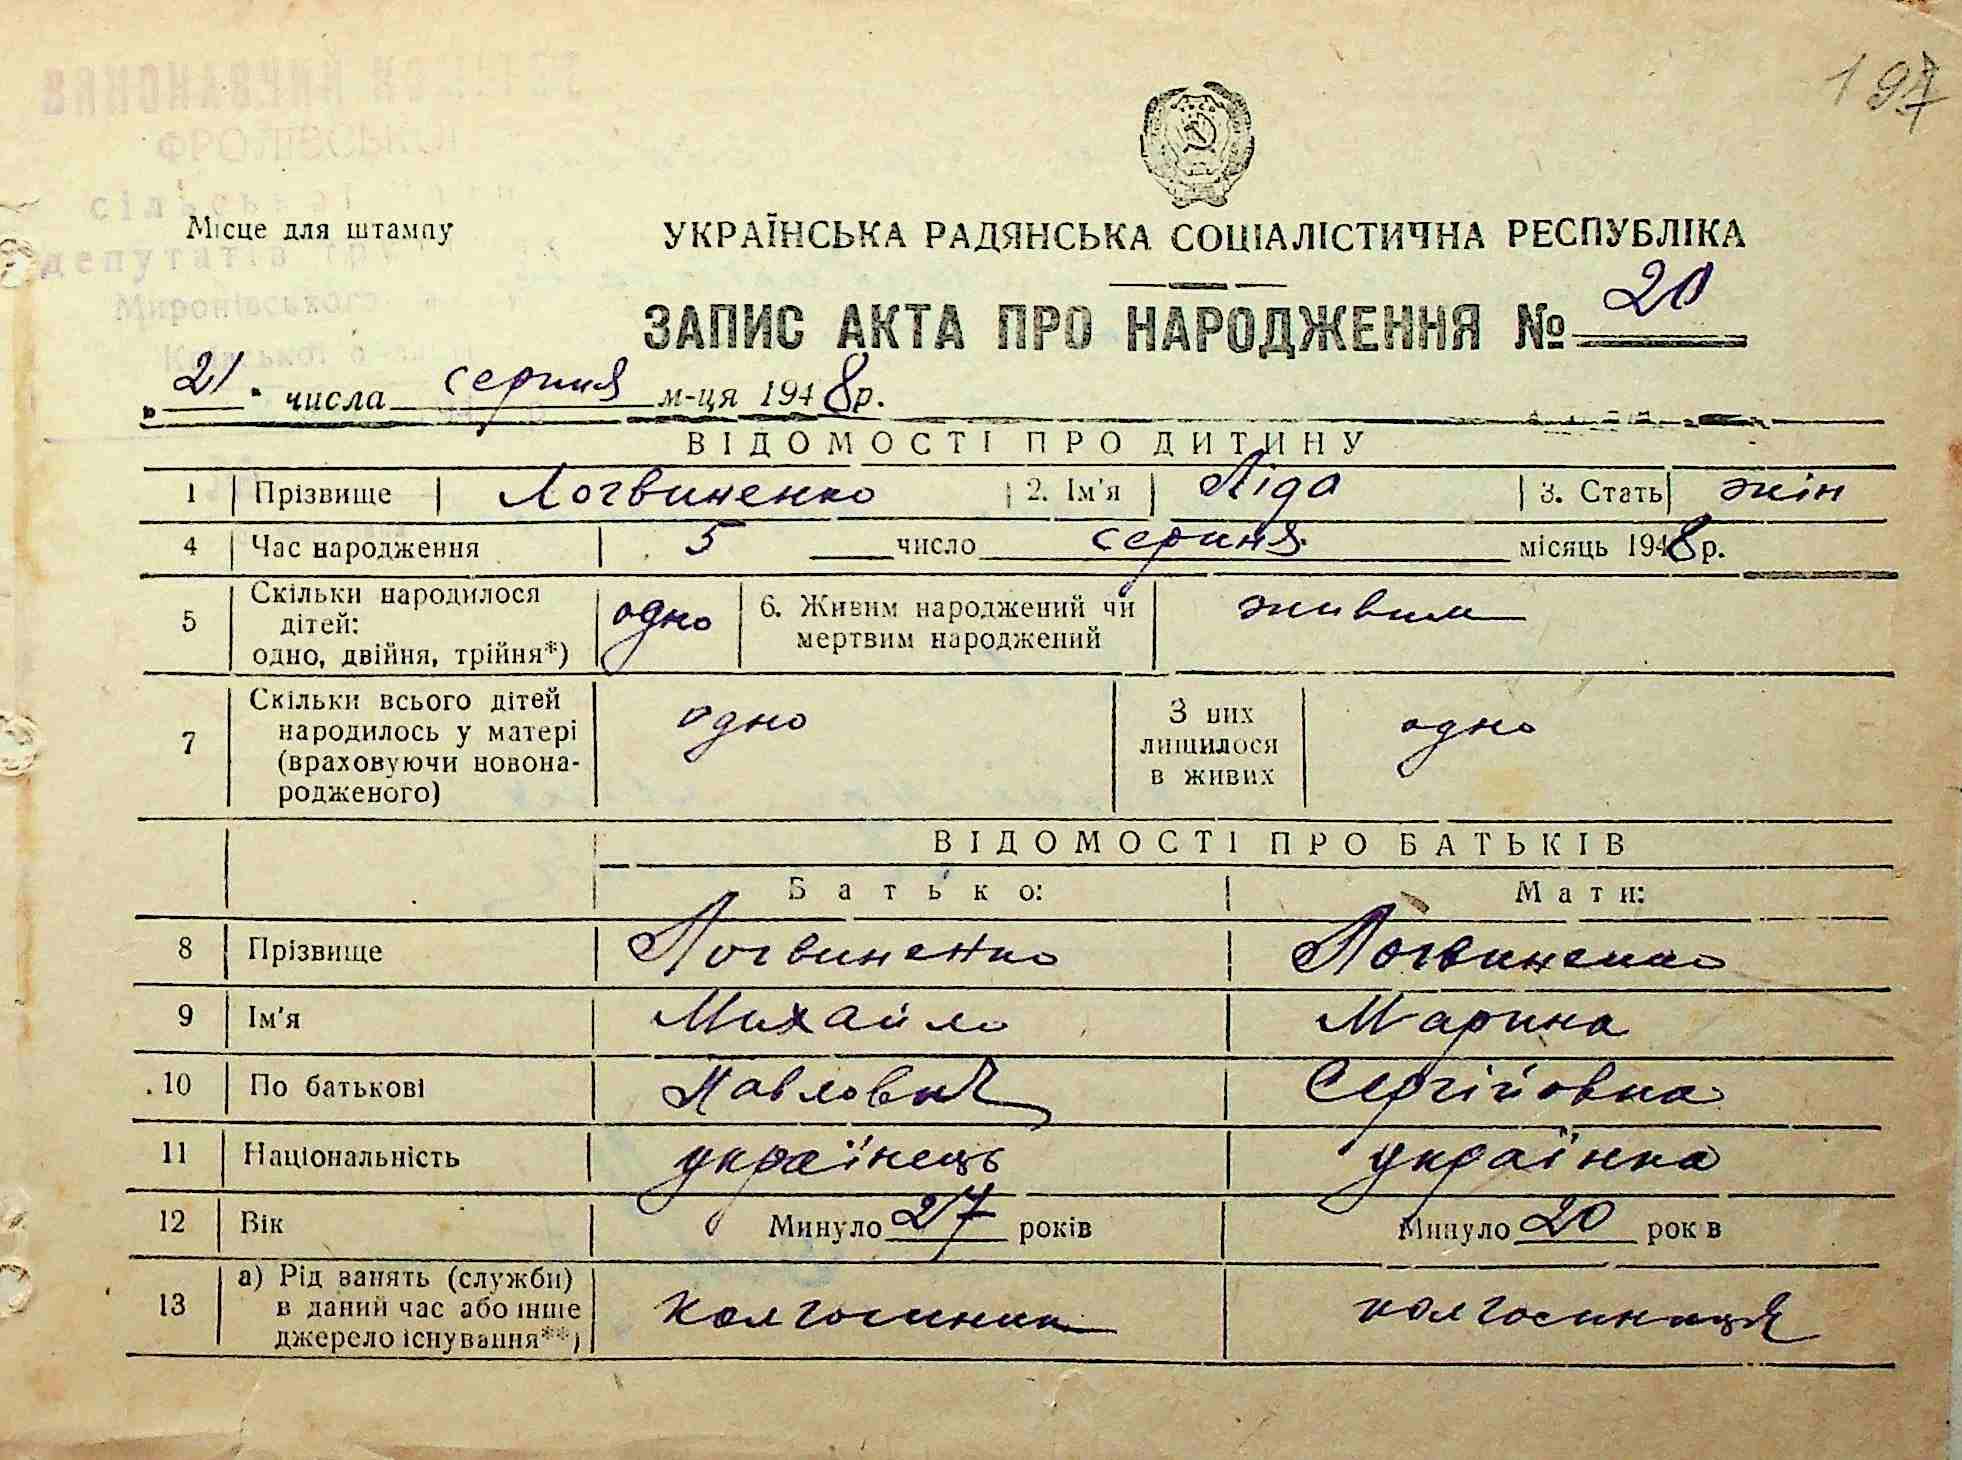 197
ВИКОНАВЧИЙ КОМІТЕТ
ФРОЛІВСЬКОЇ
сільської
Місце для штампу
депутатів
Миронівського
Київської
УКРАЇНСЬКА РАДЯНСЬКА СОЦІАЛІСТИЧНА РЕСПУБЛІКА
ЗАПИС АКТА ПРО НАРОДЖЕННЯ № 20
„ 21 " числа серпня м-ця 1948 р.
ВІДОМОСТІ ПРО ДИТИНУ
1 Прізвище Логвиненко 2. Ім'я Ліда 3. Стать жін
4 Час народження 5 число серпня місяць 1948 р.
5 Скільки народилося дітей: одно, двійня, трійня*) одно 6. Живим народжений чи мертвим народжений живим
7 Скільки всього дітей народилось у матері (враховуючи новонародженого) одно З них лишилося в живих одно
ВІДОМОСТІ ПРО БАТЬКІВ
Батько: Мати:
8 Прізвище Логвиненко Логвиненко
9 Ім'я Михайло Марина
10 По батькові Павлович Сергійовна
11 Національність українець українка
12 Вік Минуло 27 років Минуло 20 рок в
13 а) Рід занять (служби) в даний час або інше джерело існування**) колгоспник колгоспниця